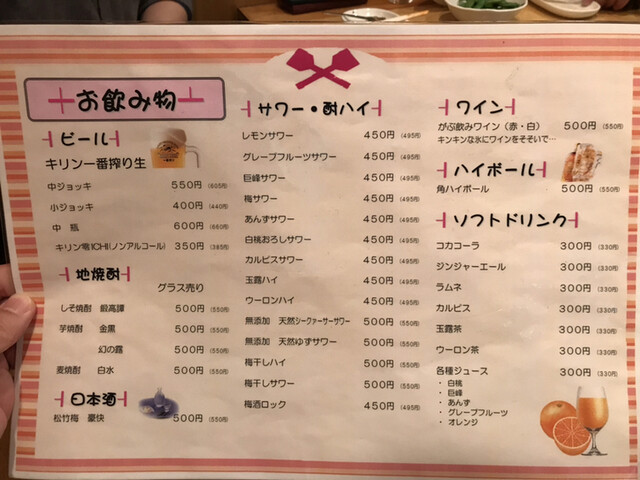 お飲み物
ビール
キリン一番搾り生
中ジョッキ 550円 (605円)
小ジョッキ 400円 (440円)
中 瓶 600円 (660円)
キリン零ICHI(ノンアルコール) 350円 (385円)
地焼酎
グラス売り
しそ焼酎 鍛高譚 500円 (550円)
芋焼酎 金黒 500円 (550円)
幻の露 500円 (550円)
麦焼酎 白水 500円 (550円)
日本酒
松竹梅 豪快 500円 (550円)
サワー・酎ハイ
レモンサワー 450円 (495円)
グレープフルーツサワー 450円 (495円)
巨峰サワー 450円 (495円)
梅サワー 450円 (495円)
あんずサワー 450円 (495円)
白桃おろしサワー 450円 (495円)
カルピスサワー 450円 (495円)
玉露ハイ 450円 (495円)
ウーロンハイ 450円 (495円)
無添加 天然シークァーサーサワー 500円 (550円)
無添加 天然ゆずサワー 500円 (550円)
梅干しハイ 500円 (550円)
梅干しサワー 500円 (550円)
梅酒ロック 450円 (495円)
ワイン
がぶ飲みワイン(赤・白) 500円 (550円)
キンキンな氷にワインをそそいで…
ハイボール
角ハイボール 500円 (550円)
ソフトドリンク
コカコーラ 300円 (330円)
ジンジャーエール 300円 (330円)
ラムネ 300円 (330円)
カルピス 300円 (330円)
玉露茶 300円 (330円)
ウーロン茶 300円 (330円)
各種ジュース 300円 (330円)
・ 白桃
・ 巨峰
・ あんず
・ グレープフルーツ
・ オレンジ